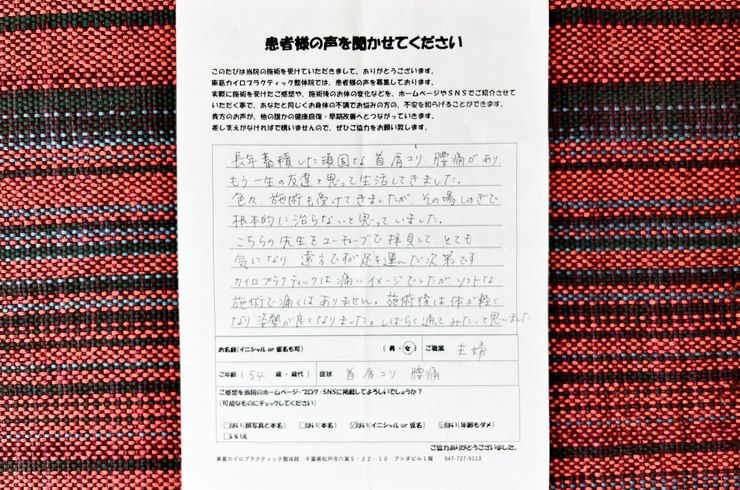 患者様の声を聞かせてください
このたびは当院の施術を受けていただきまして、ありがとうございます。
東葛カイロプラクティック整体院では、患者様の声を募集しております。
実際に施術を受けたご感想や、施術後のお体の変化などを、ホームページやSNSでご紹介させて
いただく事で、あなたと同じくお身体の不調でお悩みの方の、不安を和らげることができます。
貴方のお声が、他の誰かの健康回復・早期改善へとつながっていきます。
差し支えがなければで構いませんので、ぜひご協力をお願い致します。
長年蓄積した頑固な首肩コリ、腰痛があり、
もう一生の友達と思って生活してきました。
色々、施術も受けてきましたが、その場しのぎで
根本的に治らないと思っていました。
こちらの先生をユーチューブで拝見して、とても
気になり、遠方ですが足を運んだ次第です。
カイロプラクティックは痛いイメージでしたが、ソフトな
施術で痛くはありません。施術後は体が軽く
なり姿勢が良くなりました。しばらく通ってみたいと思いました
お名前(イニシャル or 仮名も可) (男・女) ご職業 主婦
ご年齢 (54 歳・歳代) 症状 首肩コリ、腰痛
ご感想を当院のホームページ・ブログ・SNSに掲載してよろしいでしょうか?
(可能なものにチェックしてください)
□はい(顔写真と本名) □はい(本名) ☑はい(イニシャル or 仮名) ☑はい(年齢もダメ)
□いいえ
ご協力ありがとうございました。
東葛カイロプラクティック整体院 千葉県松戸市六実5-22-10 アシダビル1階 047-727-5113